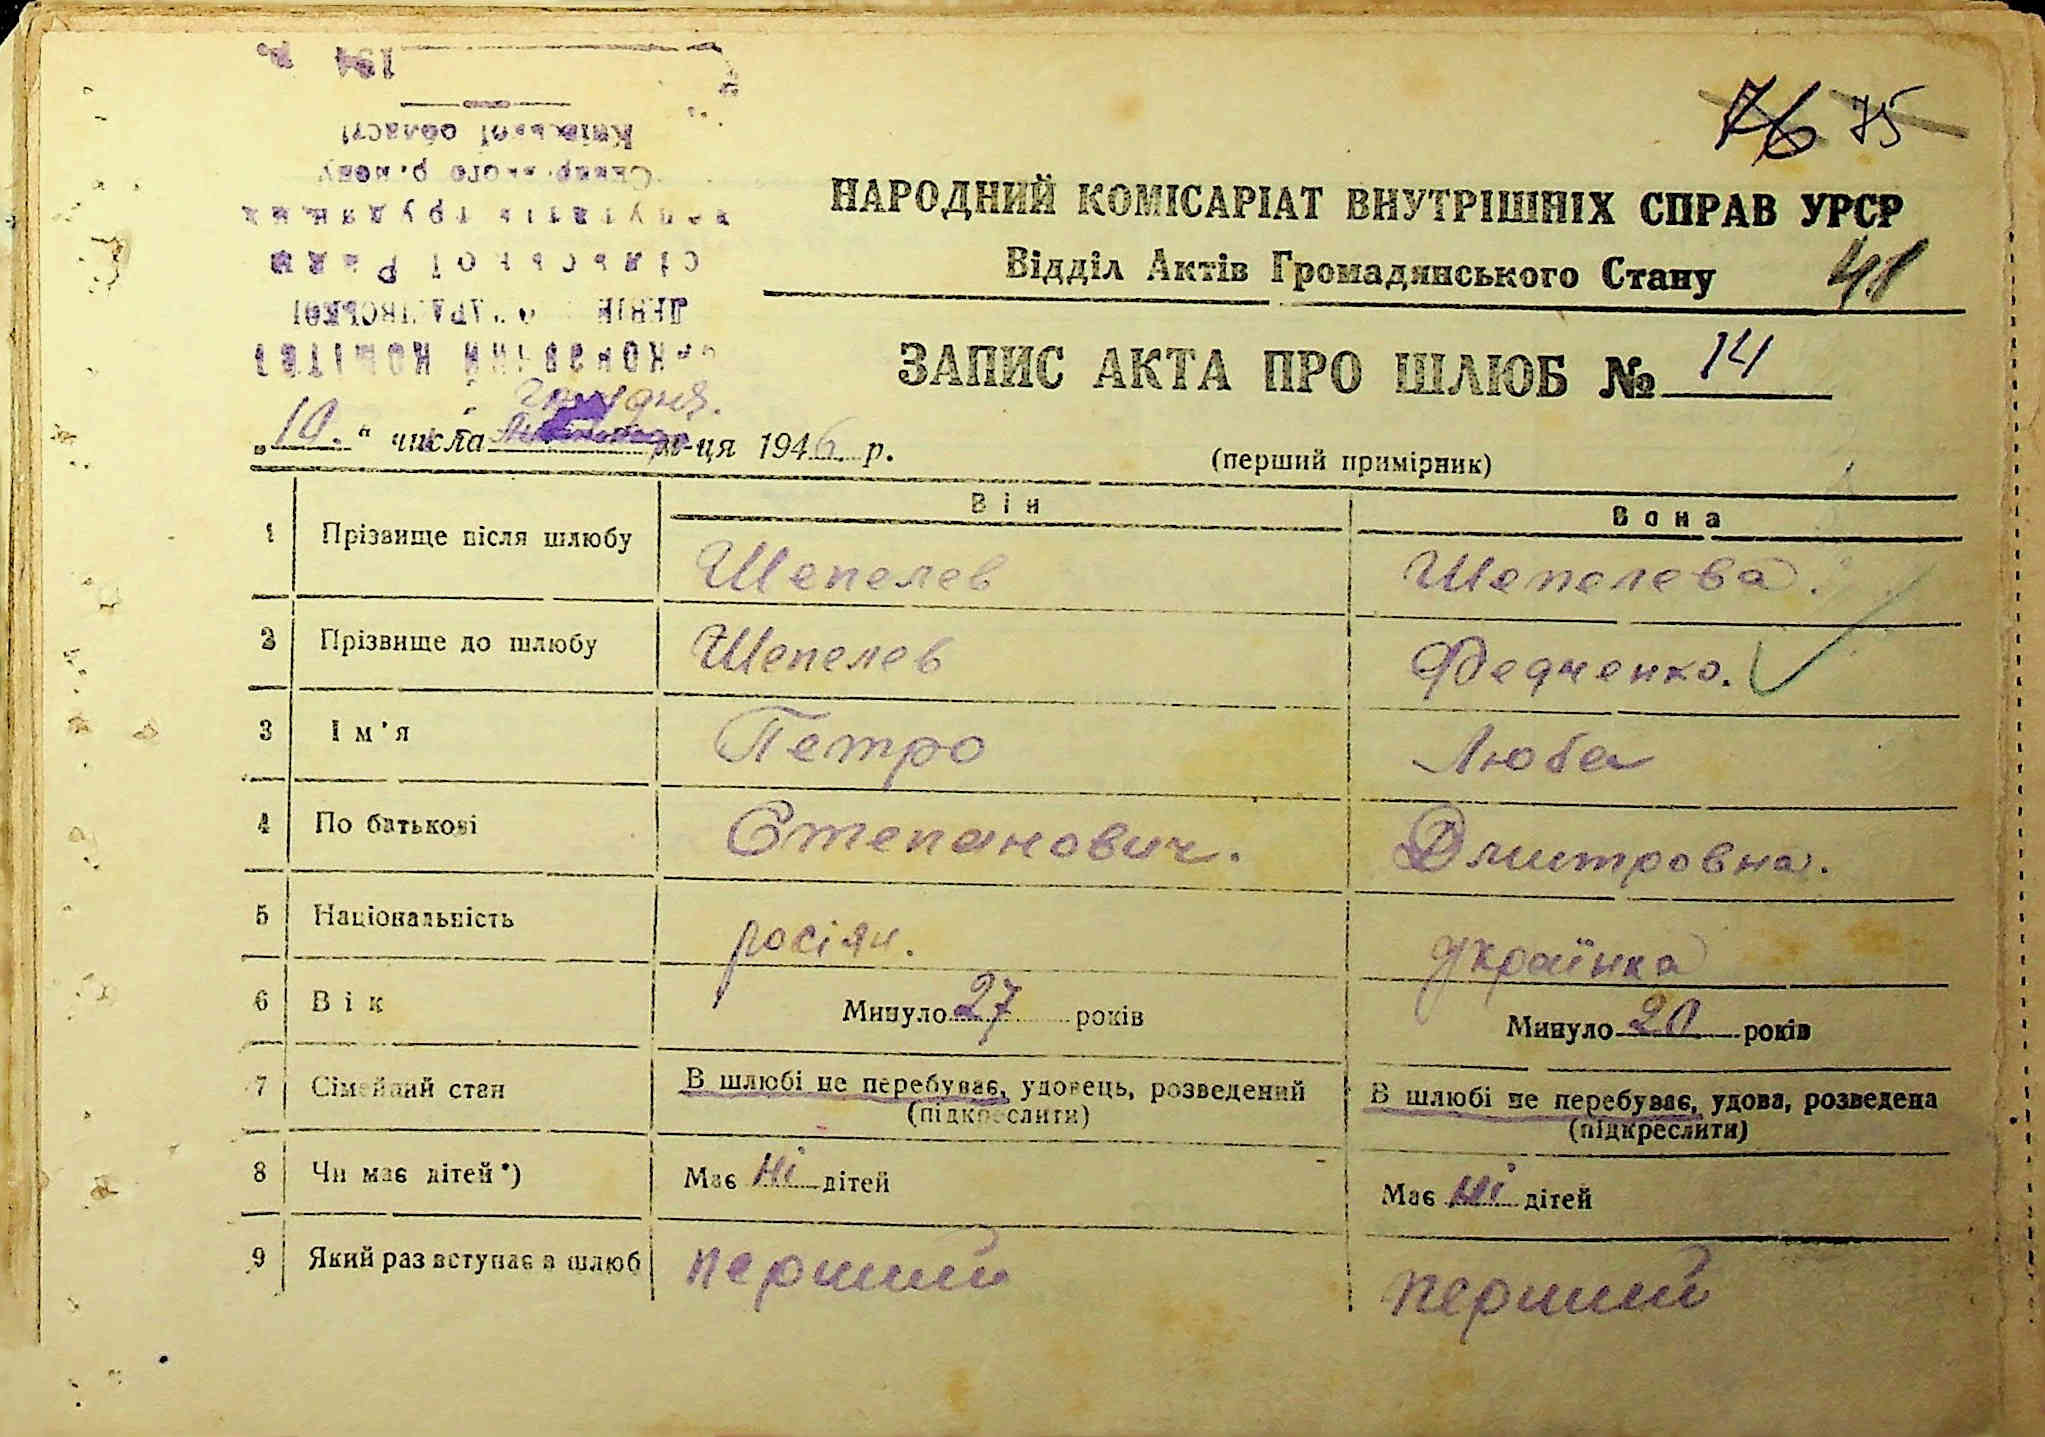 194 р.
Київської області
Сквирського району
депутатів трудящих
сільської Ради
виконавчий комітет
76 75
НАРОДНИЙ КОМІСАРІАТ ВНУТРІШНІХ СПРАВ УРСР
Відділ Актів Громадянського Стану
48
ЗАПИС АКТА ПРО ШЛЮБ № 14
грудня.
„10.“ числа м-ця 1946 р.
(перший примірник)
Він Вона
1 Прізвище після шлюбу Шепелев Шепелева.
2 Прізвище до шлюбу Шепелев Федченко.
3 Ім'я Петро Люба
4 По батькові Степанович. Дмитровна.
5 Національність росіян. українка
6 Вік Минуло 27 років Минуло 20 років
7 Сімейний стан В шлюбі не перебуває, удовець, розведений В шлюбі не перебуває, удова, розведена
(підкреслити) (підкреслити)
8 Чи має дітей*) Має ні дітей Має ні дітей
9 Який раз вступає в шлюб перший перший